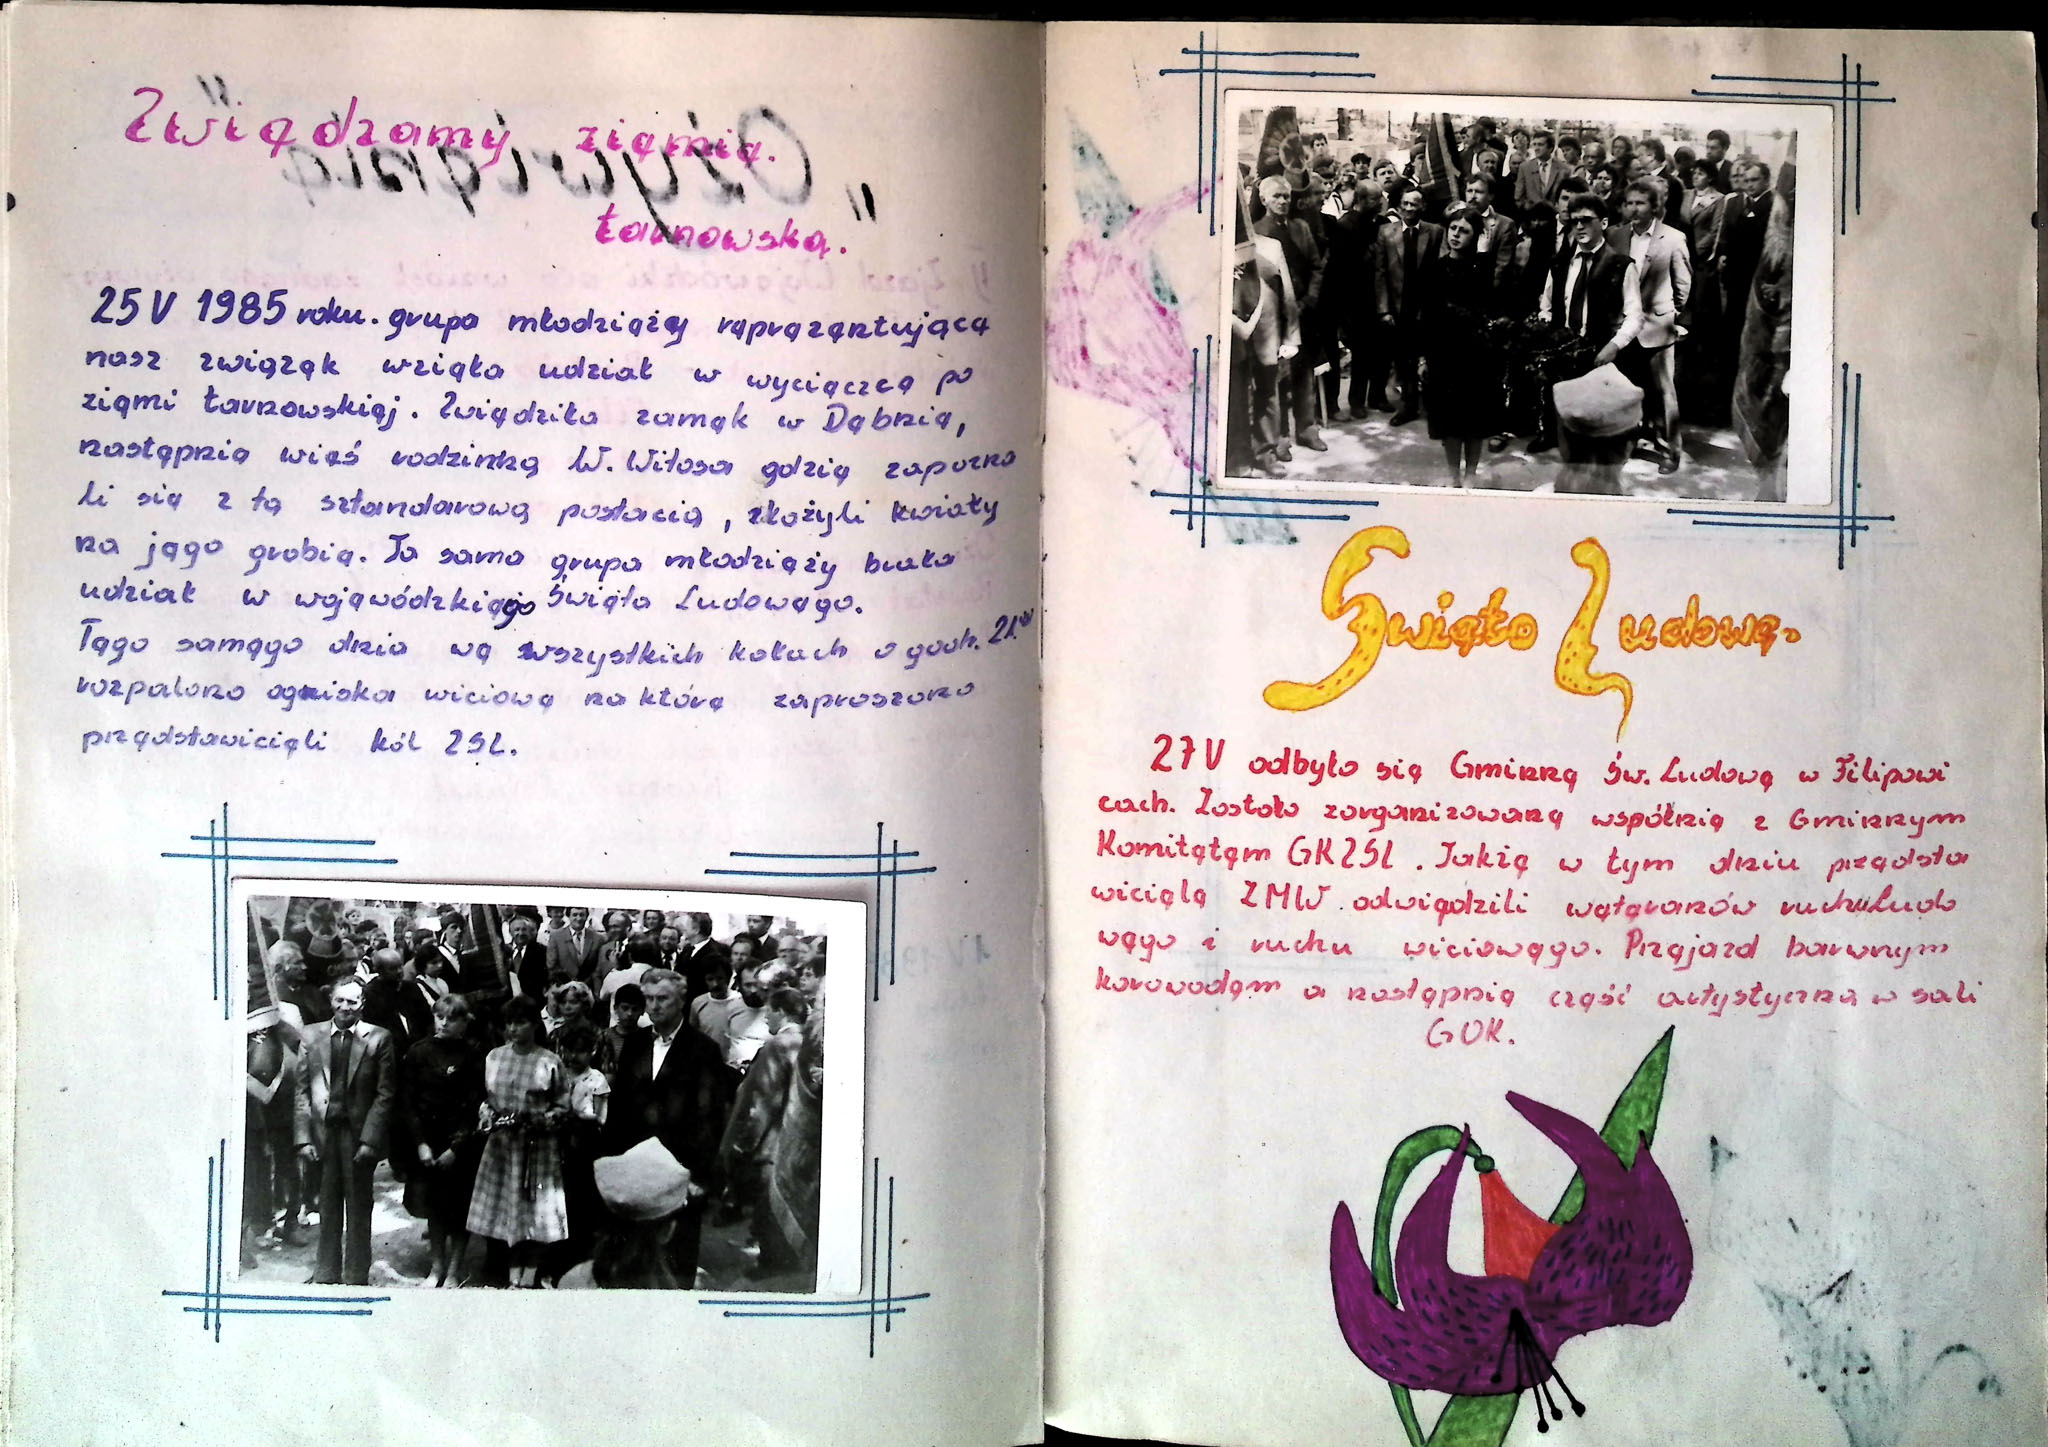 Zwiędzamy ziemię
tarnowską.
25 V 1985 roku. grupa młodzieży reprezentująca
nasz związek wzięła udział w wycieczce po
ziemi tarnowskiej. Zwiedziła zamek w Dębnie,
następnie wieś rodzinną W. Witosa gdzie zapozna
li się z tą sztandarową postacią, złożyli kwiaty
na jego grobie. Ta sama grupa młodzieży brała
udział w wojewódzkiego Święta Ludowego.
Tego samego dnia we wszystkich kołach o godz. 21.00
rozpalono ogniska wiciowe na które zaproszono
przedstawicieli kół ZSL.
Święto Ludowe.
27 V odbyło się Gminne Św. Ludowe w Filipowi
cach. Zostało zorganizowane wspólnie z Gminnym
Komitetem GKZSL. Także w tym dniu przedsta
wiciele ZMW odwiedzili weteranów ruchu Ludo
wego i ruchu wiciowego. Przejazd barwnym
korowodem a następnie część artystyczna w sali
GOK.